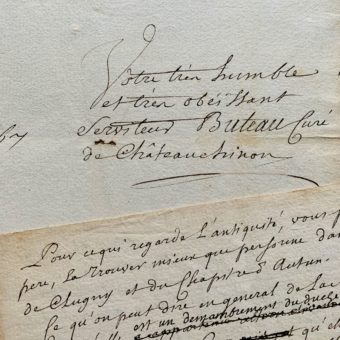 Votre tres humble
et tres obeissant
Serviteur Buteau Curé
de Châteauchinon
67
Pour ce qui regarde L'antiquité, vous p
pere, la trouver mieux que personne dan
de Clugny et du Chapitre d'Autun.
Ce qu'on peut dire en general de La c
est un demembrement du duché
qu'il e